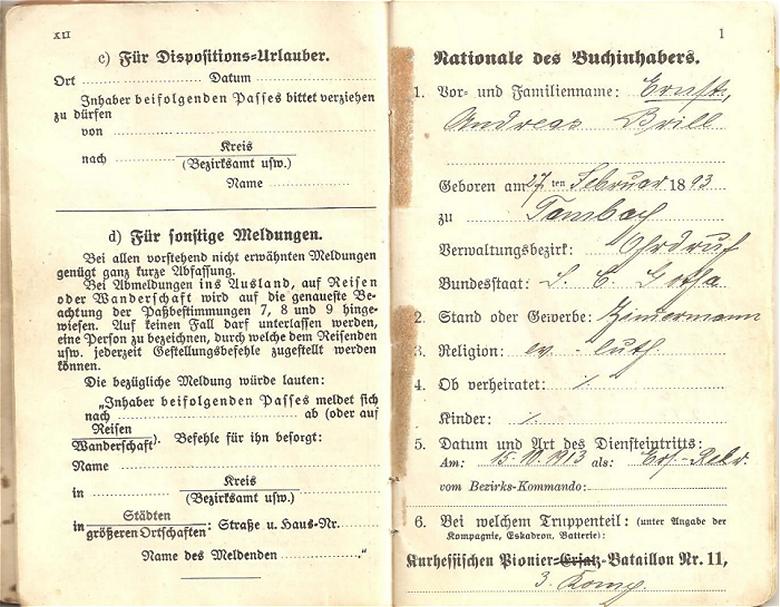 XII
c) Für Dispositions-Urlauber.
Ort ........ Datum ........
Inhaber beifolgenden Passes bittet verziehen
zu dürfen
von ........
nach ........ Kreis
(Bezirksamt usw.)
Name ........
d) Für sonstige Meldungen.
Bei allen vorstehend nicht erwähnten Meldungen
genügt ganz kurze Abfassung.
Bei Abmeldungen ins Ausland, auf Reisen
oder Wanderschaft wird auf die genaueste Be-
achtung der Paßbestimmungen 7, 8 und 9 hinge-
wiesen. Auf keinen Fall darf unterlassen werden,
eine Person zu bezeichnen, durch welche dem Reisenden
usw. jederzeit Gestellungsbefehle zugestellt werden
können.
Die bezügliche Meldung würde lauten:
„Inhaber beifolgenden Passes meldet sich
nach ........ ab (oder auf
Reisen
Wanderschaft). Befehle für ihn besorgt:
Name ........
in ........ Kreis
(Bezirksamt usw.)
in Städten
größeren Ortschaften: Straße u. Haus-Nr. ........
Name des Meldenden ........"
1
Nationale des Buchinhabers.
1. Vor- und Familienname: Ernst,
Andreas Brill
Geboren am 27ten Februar 1893
zu Tambach
Verwaltungsbezirk: Ohrdruf
Bundesstaat: S. C. Gotha
2. Stand oder Gewerbe: Zimmermann
3. Religion: ev - luth.
4. Ob verheiratet: /.
Kinder: /.
5. Datum und Art des Diensteintritts:
Am: 15.10.1913 als: Ers.-Rekr.
vom Bezirks-Kommando: ........
6. Bei welchem Truppenteil: (unter Angabe der
Kompagnie, Eskadron, Batterie):
Kurhessischen Pionier-Ersatz-Bataillon Nr. 11,
3. Komp.